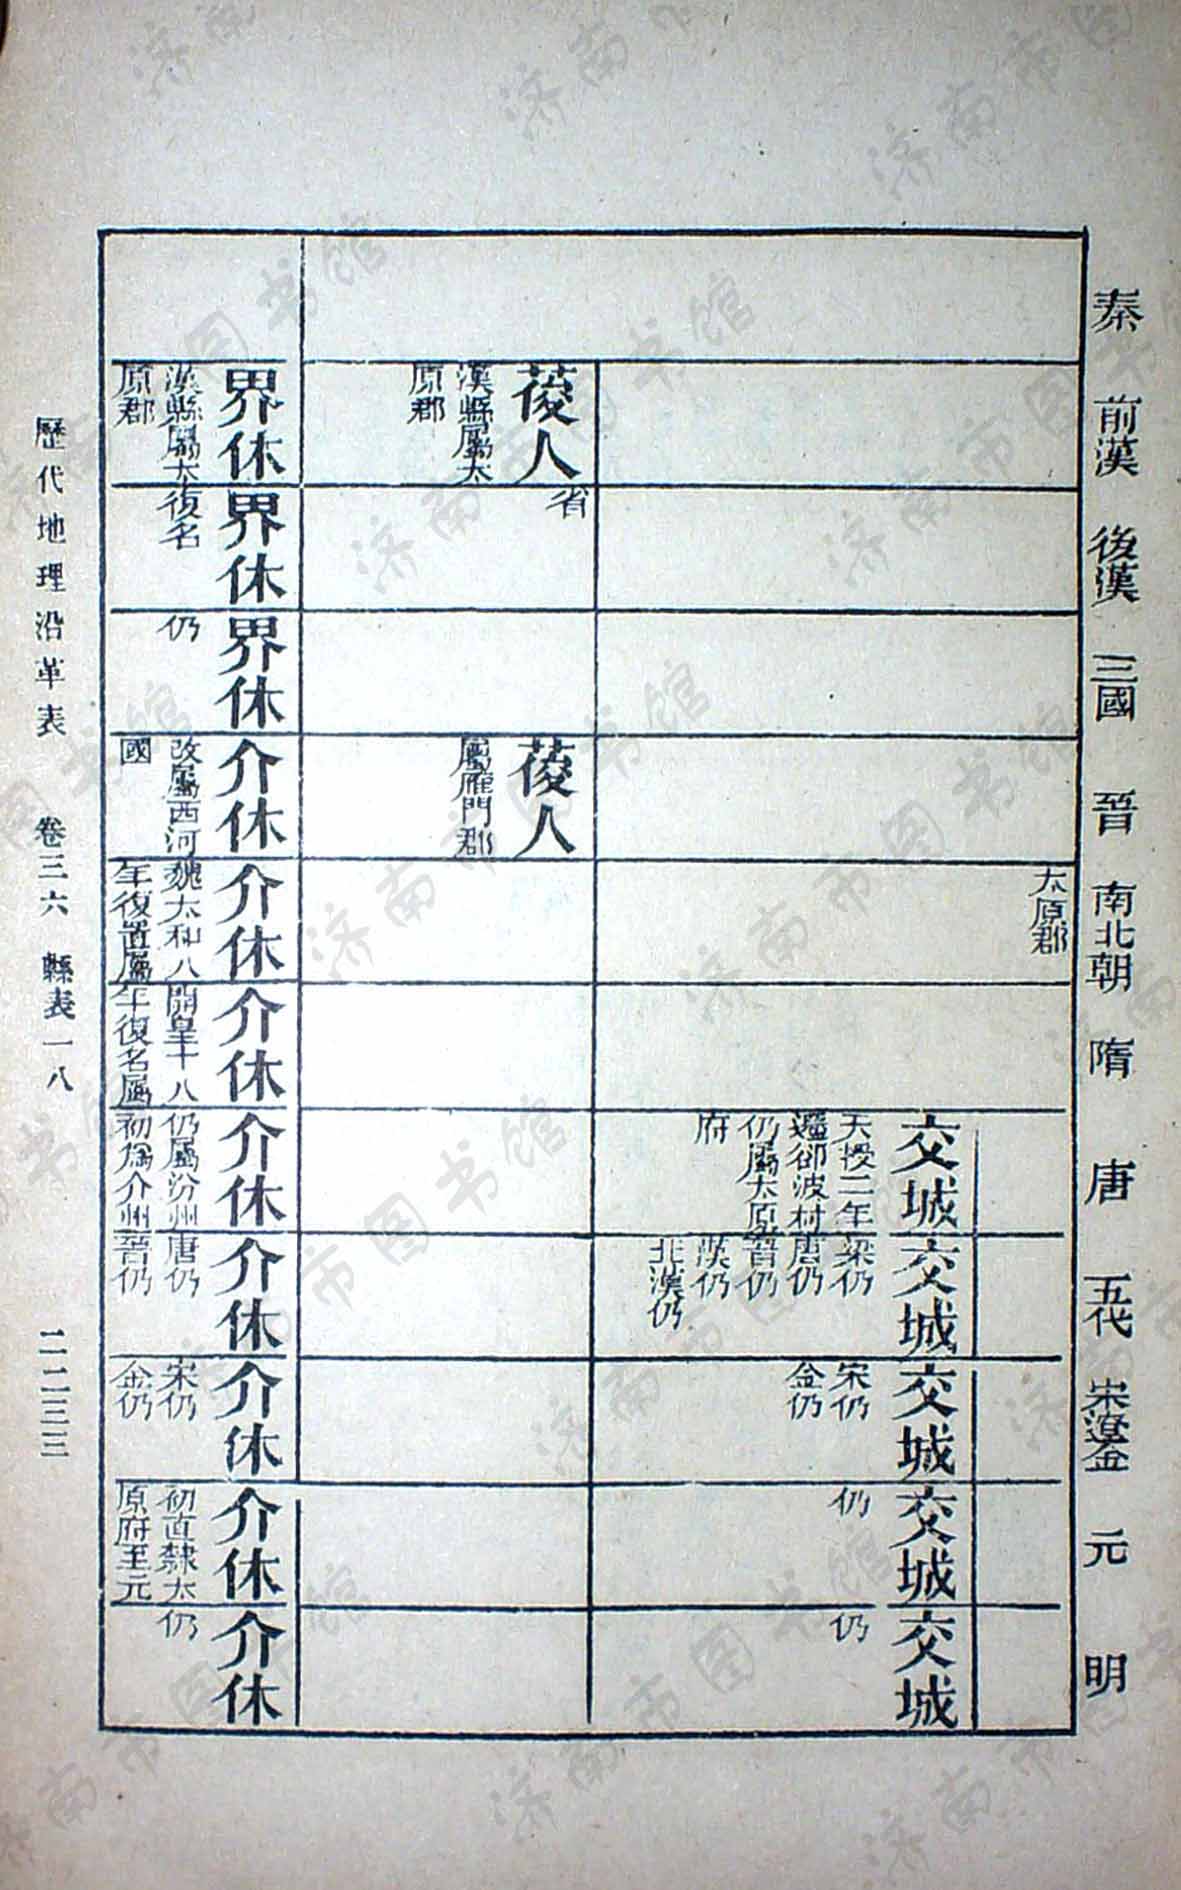 秦 前漢 後漢 三國 晉 南北朝 隋 唐 五代 宋遼金 元 明
太原郡
交城
天授二年
還卻波村
仍屬太原
府
交城
梁仍
唐仍
晉仍
漢仍
北漢仍
交城
宋仍
金仍
交城
仍
交城
仍
葰人
漢縣屬太
原郡
省
葰人
屬雁門郡
界休
漢縣屬太
原郡
界休
復名
界休
仍
介休
改屬西河
國
介休
魏太和八
年復置屬
介休
開皇十八
年復名屬
介休
仍屬汾州
初為介州
介休
唐仍
晉仍
介休
宋仍
金仍
介休
初直隸太
原府至元
介休
仍
歷代地理沿革表 卷三六 縣表一八 二二三三
济南市图书馆